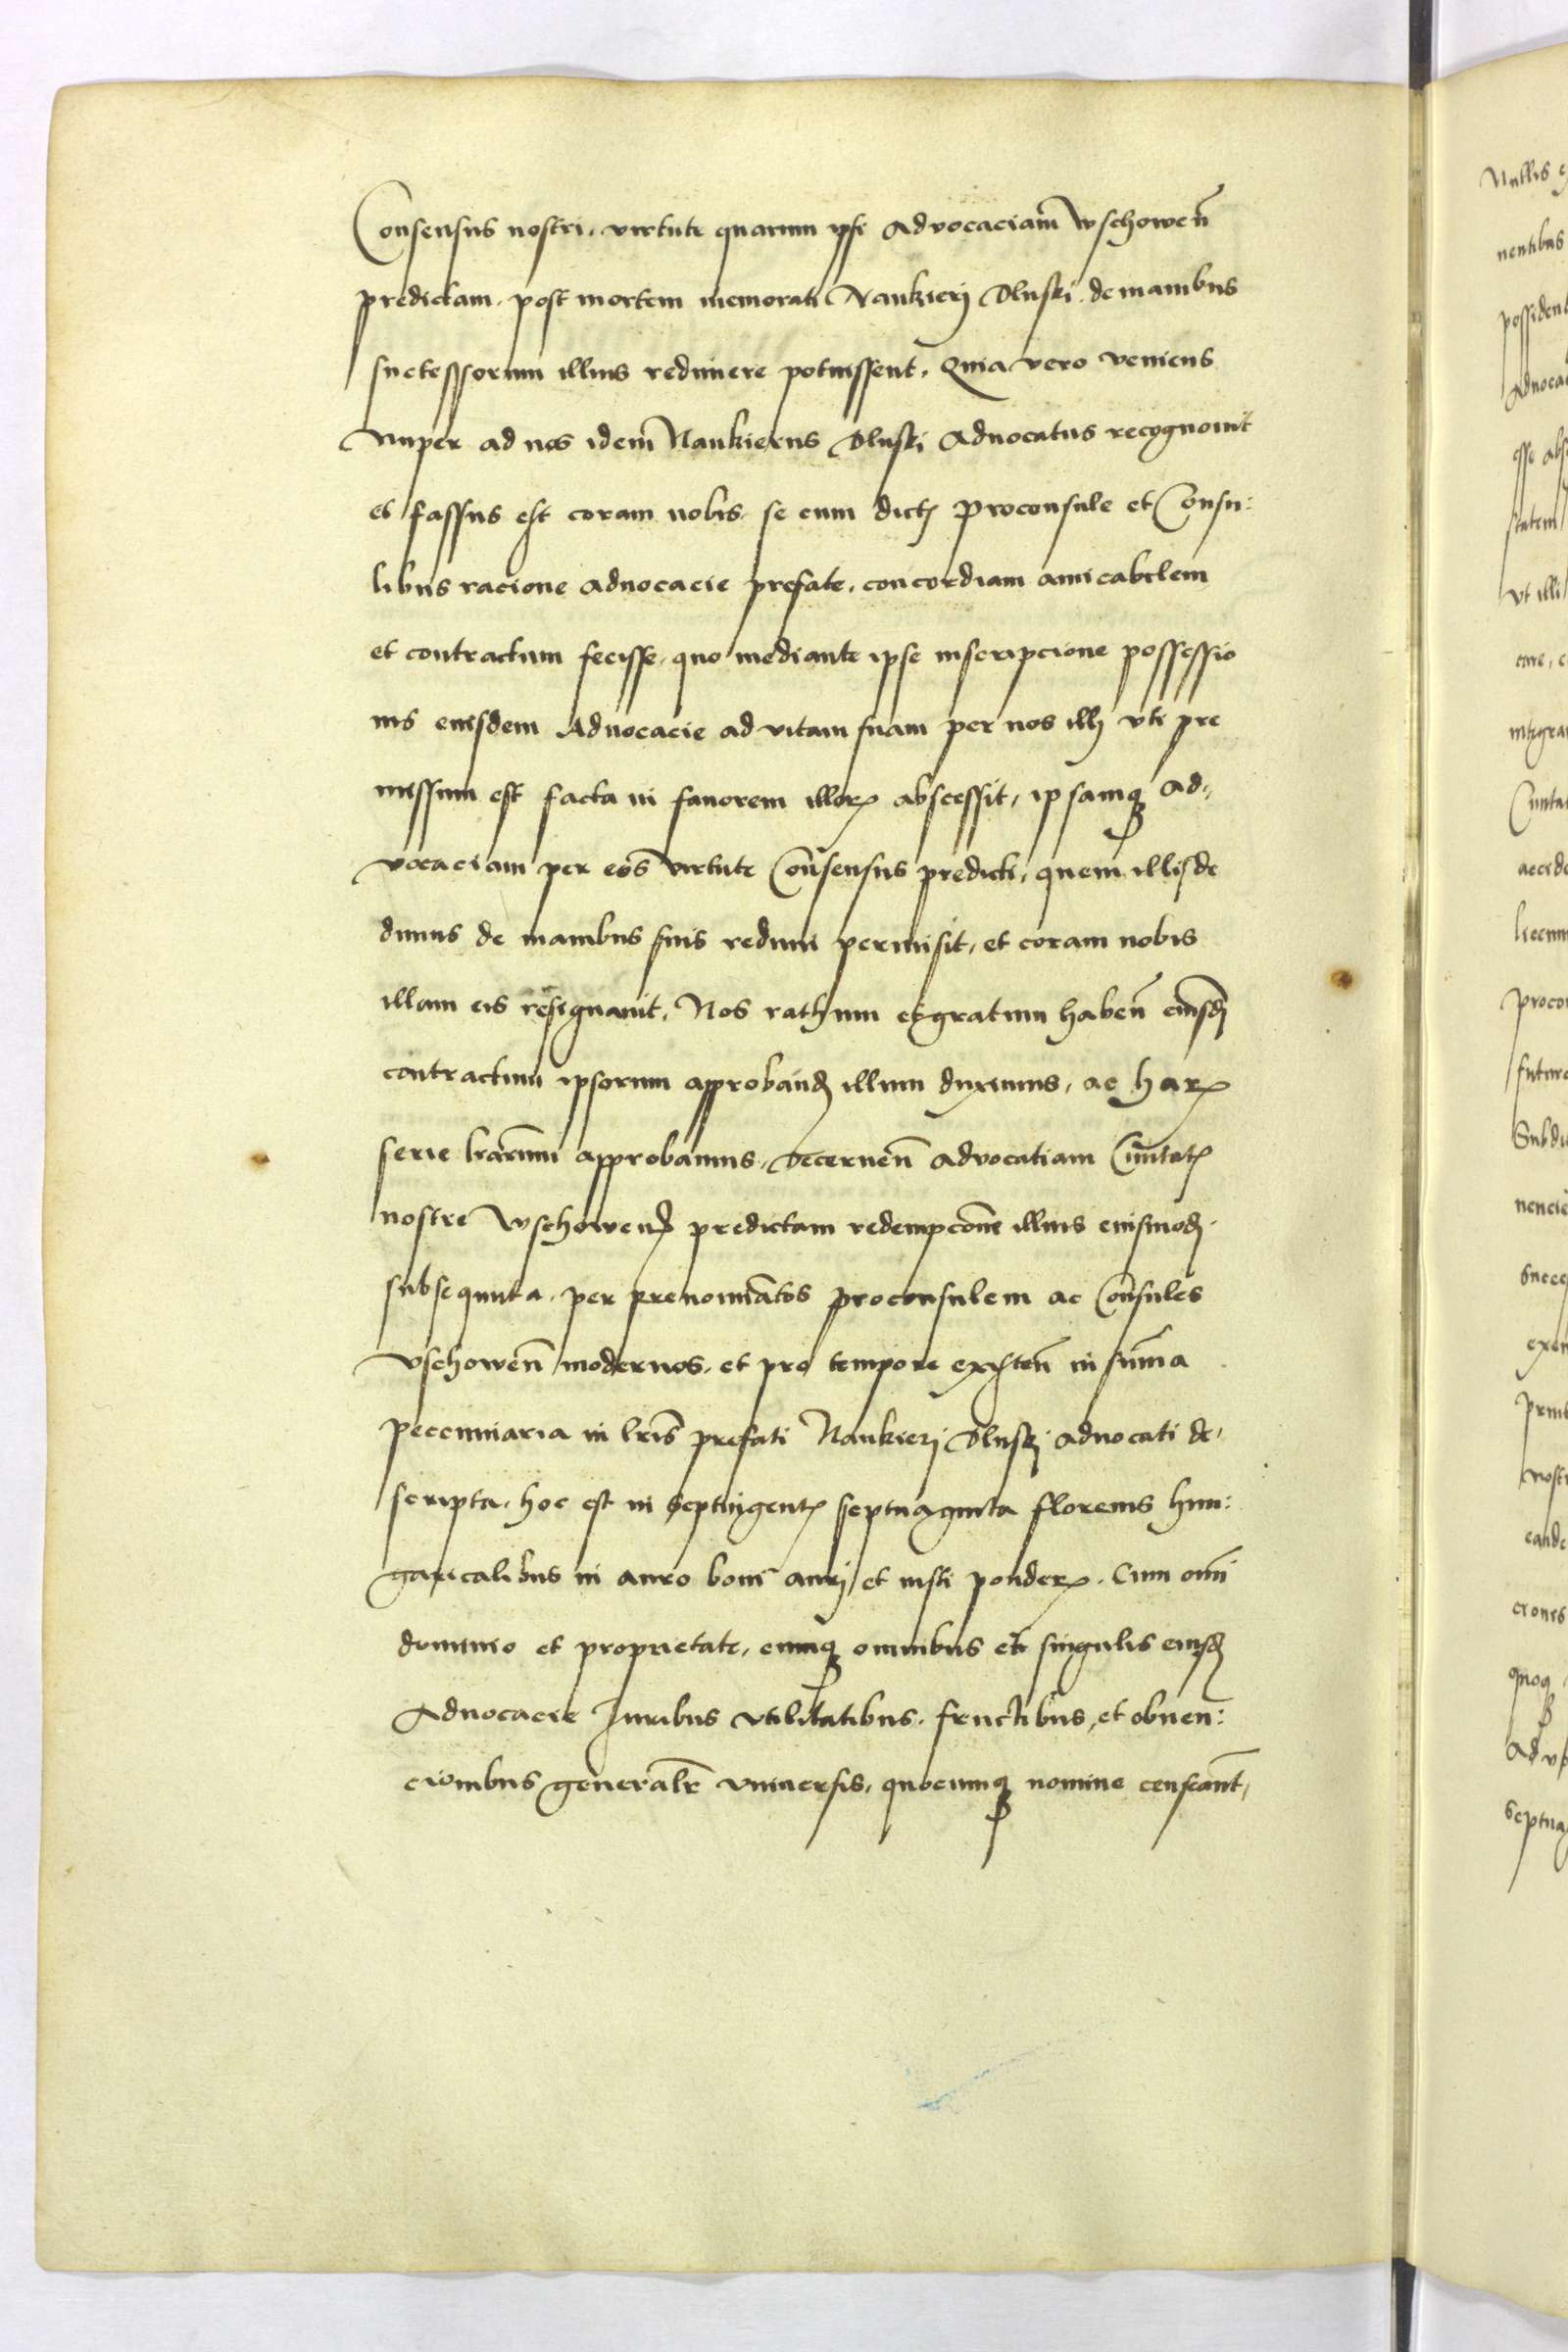 Consensus nostri, virtute quarum ipsi Advocaciam Wschowen̄
predictam, post mortem memorati Nankierj Dluski, de manibus
successorum illius redimere potuissent. Quia vero veniens
nuper ad nos idem̄ Nankierus Dluski Aduocatus recognouit
et fassus est coram nobis se cum dictꝭ Proconsule et Consu:
libus racione aduocacie prefate, concordiam amicabilem
et contractum fecisse, quo mediante ipse inscripcione possessio
nis eiusdem Aduocacie ad vitam suam per nos illj vti pre
missum est facta in fauorem illorꝝ abscessit, ipsamqꝫ Ad-
vocaciam per eos virtute Cōnsensus predicti, quem illis de
dimus de manibus suis redimi permisit, et coram nobis
illam eis resignauit, Nos rathum et gratum haben̄ eiusdꝫ
contractum ipsorum approbandꝫ illum duximus, ac harꝝ
serie lrārum approbamus, Decernen̄ aduocatiam Ciuitatꝭ
nostre Wschowenꝭ predictam redempcōne illius eiusmodꝫ
subsequuta, per prenominātos proconsulem ac Cōnsules
Vschowen̄ modernos, et pro tempore existen̄ in sum̄a
pecuniaria in lrīs prefati Nankierj Dluskj aduocati de-
scripta, hoc est in Septingentꝭ septuaginta florenis hun:
garicalibus in auro boni aurj et iusti ponderꝭ. Cum om̄i
dominio et proprietate, cumqꝫ omnibus et singulis eiusdꝫ
Aduocacie Juribus vtilitatibus, fructibus, et obuen:
cionibus generalr̄ vniuersis, quocumqꝫ nomine censeant̄,

Nullis
nentibus
possident
Aduoca
esse abs
statem
vt illi
integra
Ciuita
accide
procon
futur
Subdi
nencie
succe
exem
nostr
eande
ciones
quoqꝫ
septua